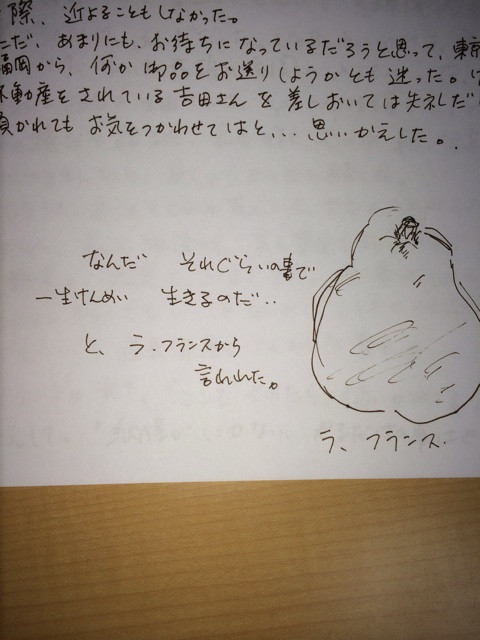 際、近よることもしなかった。
ただ、あまりにも、お待ちになっているだろうと思って、東京
福岡から、何か御品をお送りしようかとも迷った。
不動産をされている吉田さんを差しおいては失礼だし
負かれてもお気をつかわせてはと、... 思いかえした。
なんだ それぐらいの事で
一生けんめい 生きるのだ..
と、ラ・フランスから
言われた。
ラ、フランス.